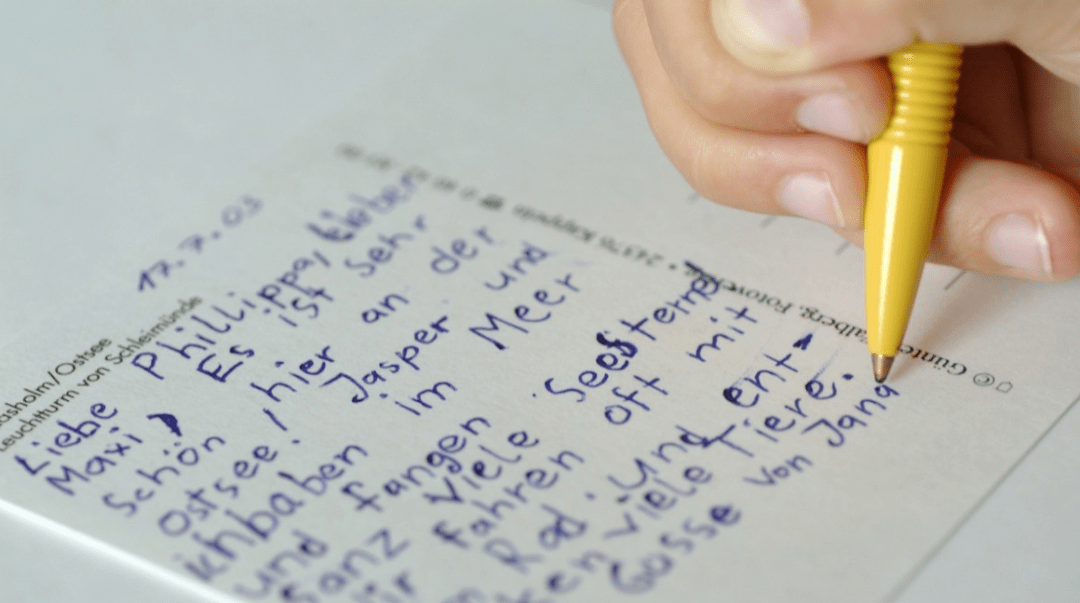 17.7.03
Liebe Phillippa, lieber
Maxi, Es ist sehr
schön hier an der
Ostsee! Jasper und
ich baben im Meer
und fangen Seestern
ganz viele
fahren oft mit
Rad. und ent-
ken viele Tiere.
von Jana
asholm/Ostsee
Leuchtturm von Schleimünde
© Günter alberg, Fotove • 24376 Kappeln